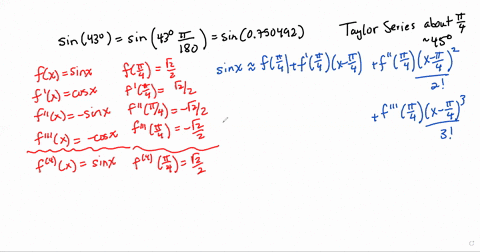 sin(43°) = sin(43° π/180) = sin(0.750492)
Taylor Series about π/4
~45°
f(x) = sinx f(π/4) = √2/2
f'(x) = cosx f'(π/4) = √2/2
f''(x) = -sinx f''(π/4) = -√2/2
f'''(x) = -cosx f'''(π/4) = -√2/2
f⁽⁴⁾(x) = sinx f⁽⁴⁾(π/4) = √2/2
sinx ≈ f(π/4) + f'(π/4)(x-π/4) + f''(π/4)(x-π/4)²/2!
+ f'''(π/4)(x-π/4)³/3!